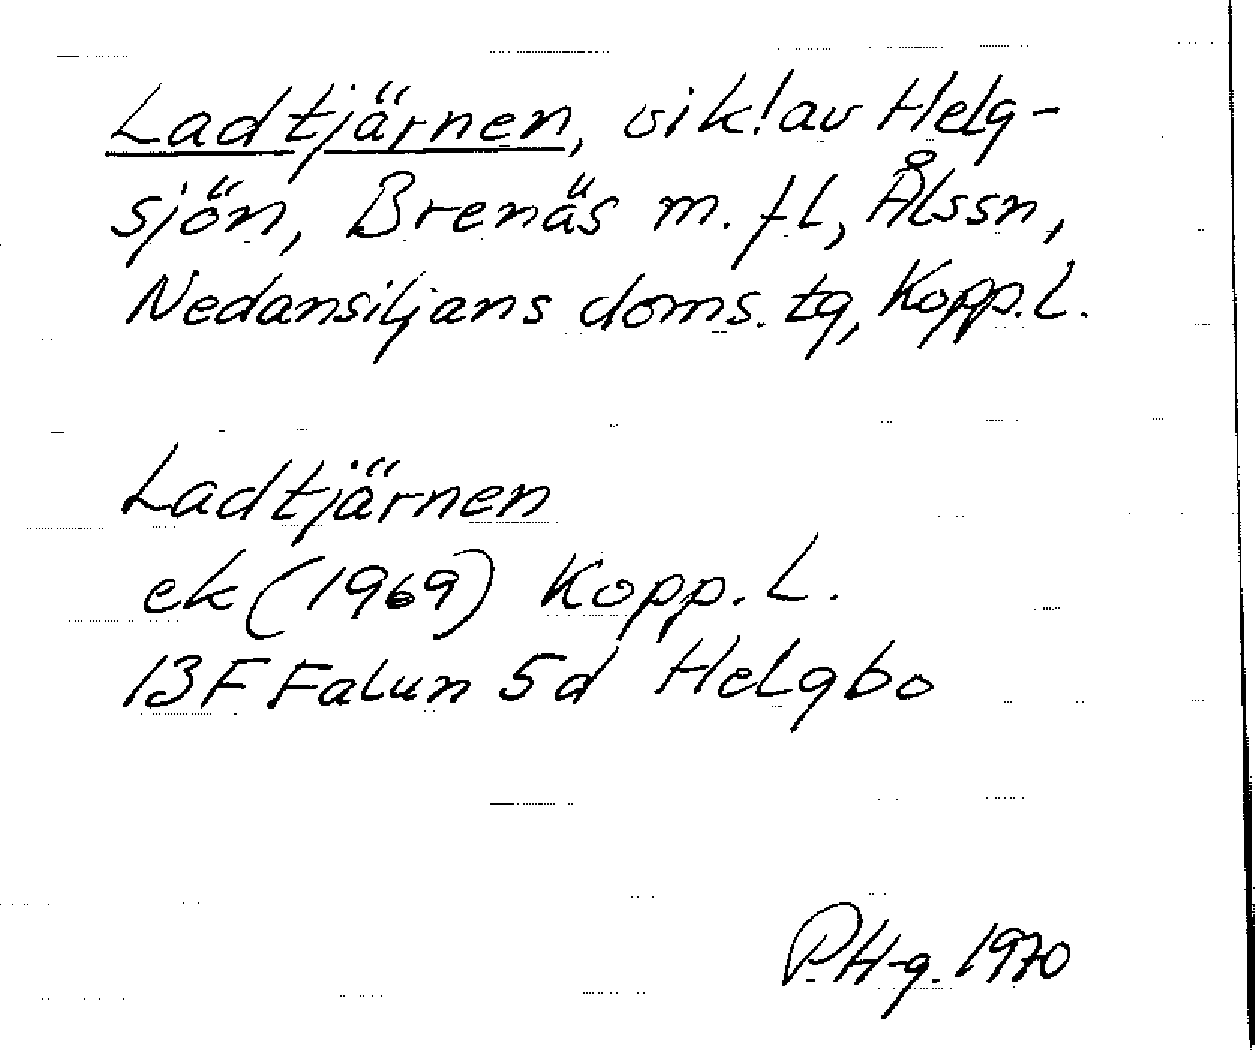 Ladtjärnen, vik! av Helg-
sjön, Brenäs m. fl, Ålssn,
Nedansiljans doms. tg, Kopp. L.
Ladtjärnen
ek (1969) Kopp. L.
13F Falun 5d Helgbo
P.H-g. 1970